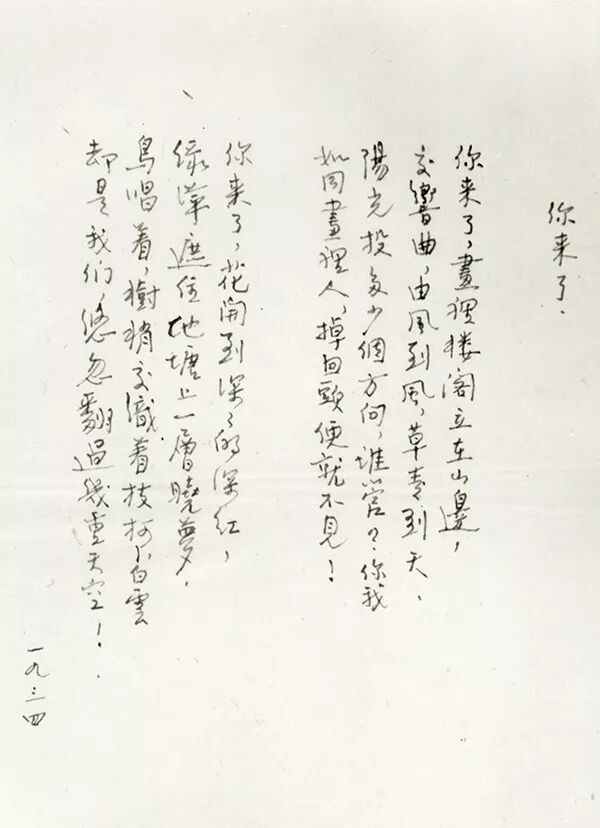 你来了.
你来了,畫裡楼阁立在山邊,
交響曲,由風到風,草青到天.
陽光投多少個方向,誰管?你我
如同畫裡人,掉回頭便就不見!
你来了,花開到深々的深红,
绿萍遮住池塘上一層曉夢.
鳥唱着,樹梢交織着枝柯,白雲
却是我们,悠忽翻過幾重天空!
一九三四